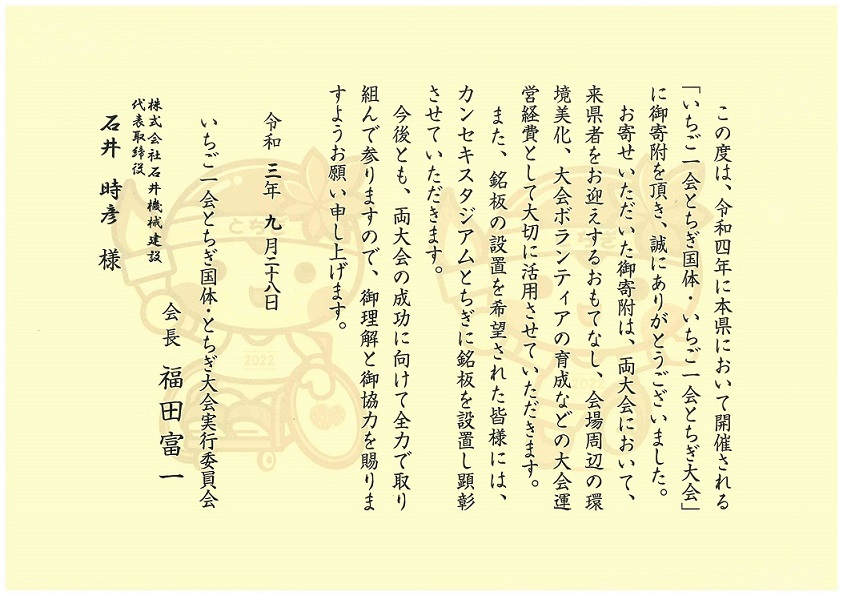 この度は、令和四年に本県において開催される
「いちご一会とちぎ国体・いちご一会とちぎ大会」
に御寄附を頂き、誠にありがとうございました。
お寄せいただいた御寄附は、両大会において、
来県者をお迎えするおもてなし、会場周辺の環
境美化、大会ボランティアの育成などの大会運
営経費として大切に活用させていただきます。
また、銘板の設置を希望された皆様には、
カンセキスタジアムとちぎに銘板を設置し顕彰
させていただきます。
今後とも、両大会の成功に向けて全力で取り
組んで参りますので、御理解と御協力を賜りま
すようお願い申し上げます。
令和 三年 九月二十八日
いちご一会とちぎ国体・とちぎ大会実行委員会
会長 福田富一
株式会社石井機械建設
代表取締役
石井 時彦 様
とちぎ
2022
とちぎ
2022